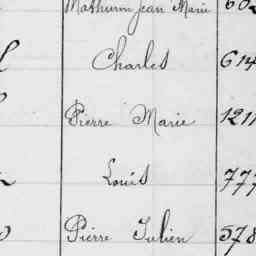 Mathurin Jean Marie 602
Charles 614
Pierre Marie 1211
Louis 777
Pierre Julien 578